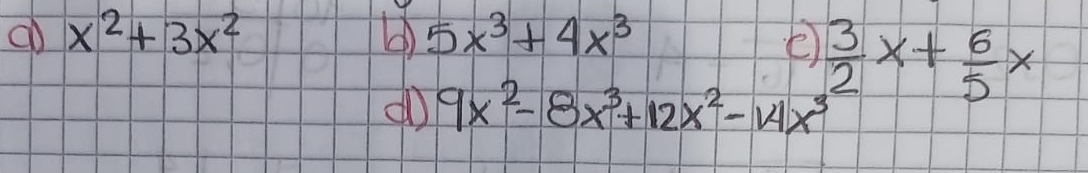 a) x² + 3x² b) 5x³ + 4x³ c) 3/2 x + 6/5 x
d) 9x² - 8x³ + 12x² - 14x³